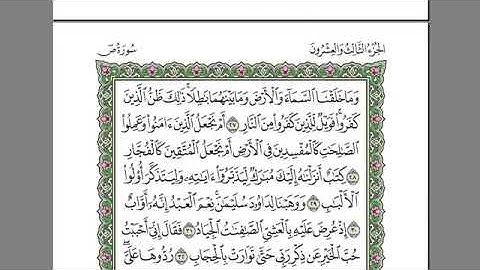 الجزء الثالث والعشرون
سورة ص
وَمَا خَلَقْنَا ٱلسَّمَآءَ وَٱلْأَرْضَ وَمَا بَيْنَهُمَا بَٰطِلًا ۚ ذَٰلِكَ ظَنُّ ٱلَّذِينَ
كَفَرُوا۟ ۚ فَوَيْلٌ لِّلَّذِينَ كَفَرُوا۟ مِنَ ٱلنَّارِ ٢٧ أَمْ نَجْعَلُ ٱلَّذِينَ ءَامَنُوا۟ وَعَمِلُوا۟
ٱلصَّٰلِحَٰتِ كَٱلْمُفْسِدِينَ فِى ٱلْأَرْضِ أَمْ نَجْعَلُ ٱلْمُتَّقِينَ كَٱلْفُجَّارِ
٢٨ كِتَٰبٌ أَنزَلْنَٰهُ إِلَيْكَ مُبَٰرَكٌ لِّيَدَّبَّرُوٓا۟ ءَايَٰتِهِۦ وَلِيَتَذَكَّرَ أُو۟لُوا۟
ٱلْأَلْبَٰبِ ٢٩ وَوَهَبْنَا لِدَاوُۥدَ سُلَيْمَٰنَ ۚ نِعْمَ ٱلْعَبْدُ ۖ إِنَّهُۥٓ أَوَّابٌ
٣٠ إِذْ عُرِضَ عَلَيْهِ بِٱلْعَشِىِّ ٱلصَّٰفِنَٰتُ ٱلْجِيَادُ ٣١ فَقَالَ إِنِّىٓ أَحْبَبْتُ
حُبَّ ٱلْخَيْرِ عَن ذِكْرِ رَبِّى حَتَّىٰ تَوَارَتْ بِٱلْحِجَابِ ٣٢ رُدُّوهَا عَلَىَّ ۖ